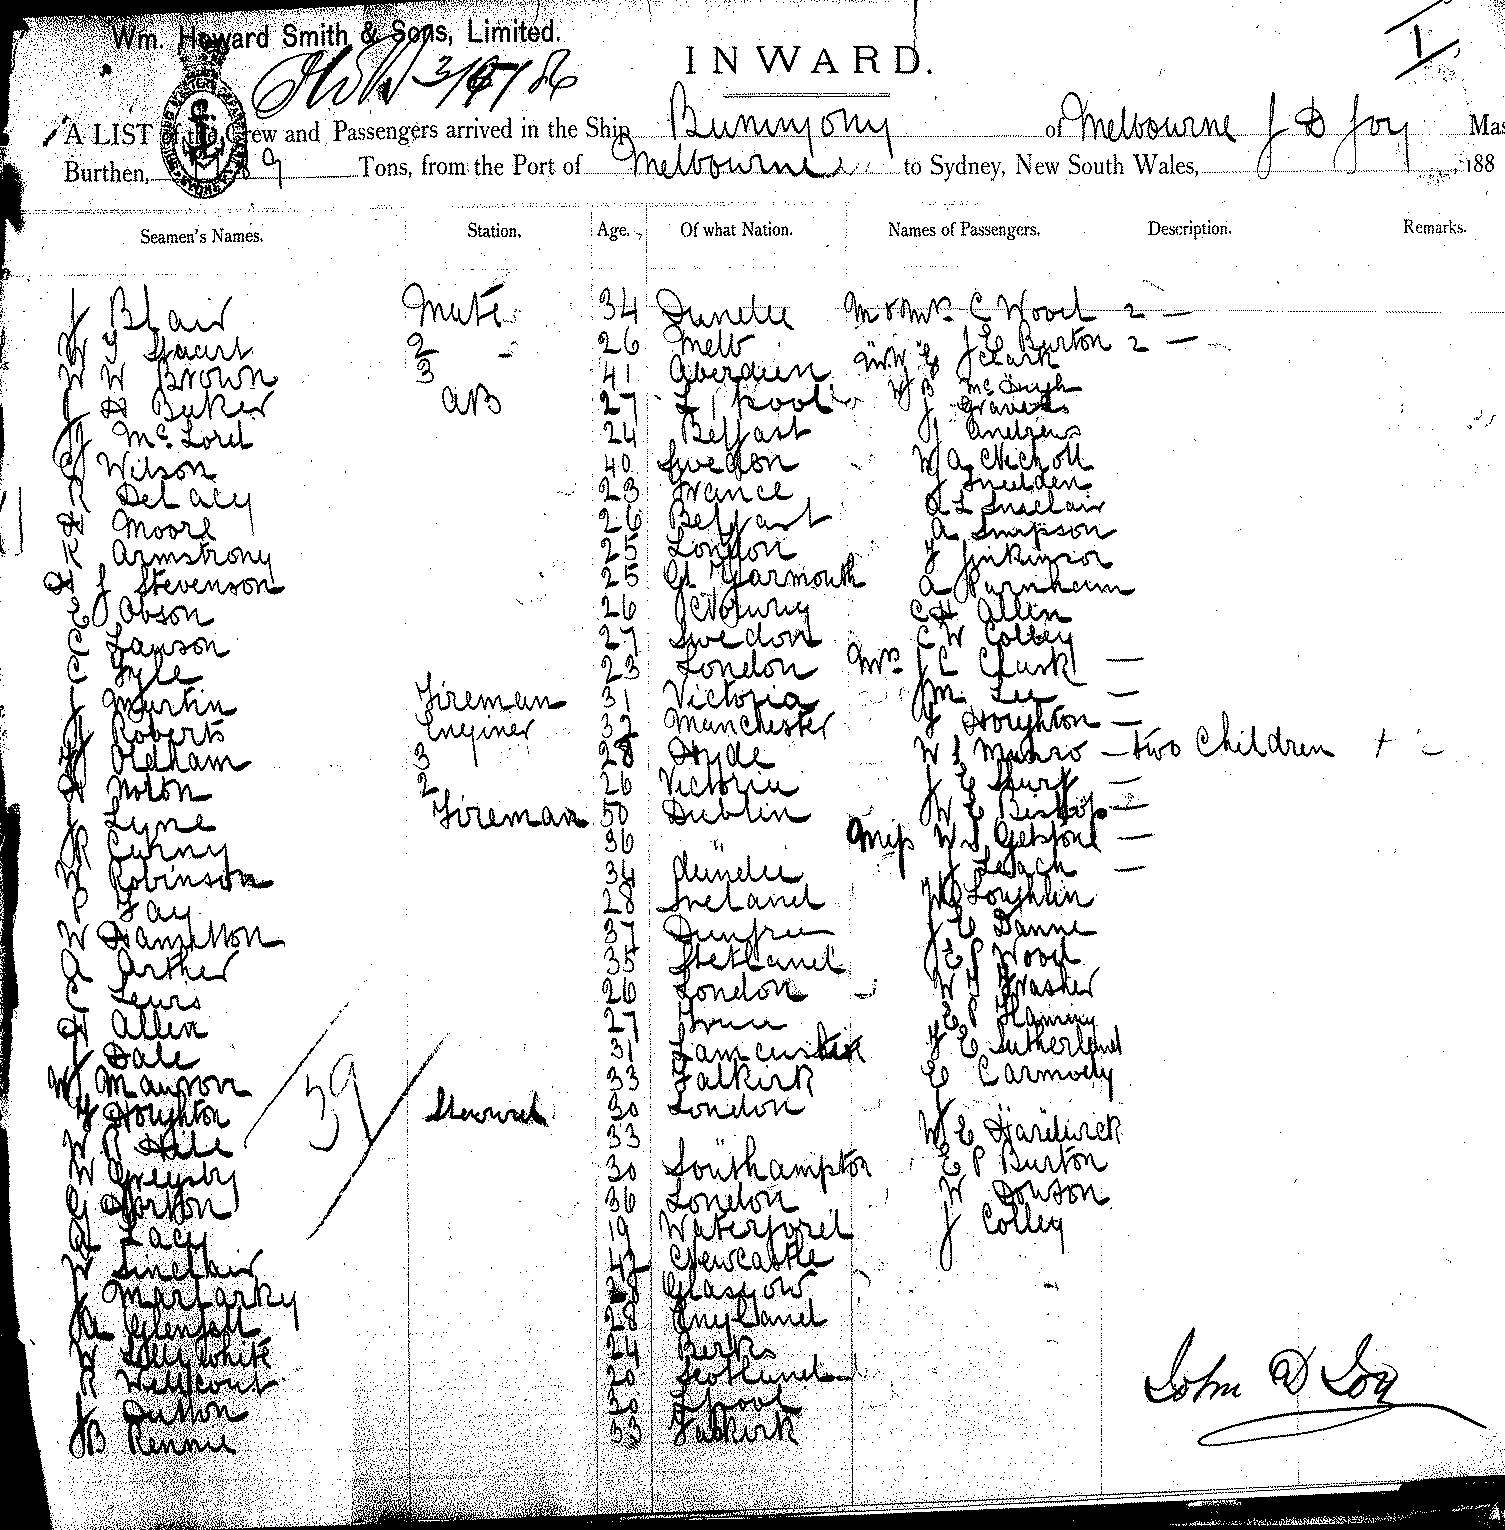 Wm. Howard Smith & Sons, Limited.
3/5/86
I
INWARD.
A LIST of the Crew and Passengers arrived in the Ship Buninyong of Melbourne J D Joy Mas
Burthen, 89 Tons, from the Port of Melbourne to Sydney, New South Wales, 188
Seamen's Names. Station. Age. Of what Nation. Names of Passengers. Description. Remarks.
J Blair Mate 34 Dundee Mr & Mrs C Wood 2 —
Stuart 2 26 Melb J E Burton 2 —
W W Brown 3 41 Aberdeen J Clark
J H Baker AB 27 L'pool McHugh
J McLord 24 Belfast J Graves
Wilson 40 Sweden J Andrews
R DeLacy 23 France W A Nicholl
H Moore 26 Belfast J Snelden
R Armstrong 25 London A L Sinclair
J Stevenson 25 Gt Yarmouth A Simpson
E Obson 26 Norway J Jinkinson
C Lawson 27 Sweden A Burnham
C Lyle 23 London C H Allen
J Martin Fireman 31 Victoria C W Colley
J Roberts Enginer 32 Manchester Mrs J C Clark —
Oldham 3 28 Hyde J M Lee —
H Noton 2 26 Victoria J Houghton —
J Lyne Fireman 50 Dublin W S Munro — two Children
R Curny 36 " J E Sharp —
W Robinson 34 Dundee W E Bishop —
P Fay 28 Ireland Miss W S Gelstone —
W Hamilton 37 Dumfree J Leach —
A Arther 35 Shetland Loughlin
C Lewis 26 London J E Danne
H Allen 27 E P Wood
J Dale 31 Lancaster W J Frasher
W J Manson 33 Falkirk E P Flaming
J Houghton Steward 30 London J E Sutherland
W R Hill 33 " E Carmody
W Gregsby 30 Southampton W E Hardwick
G Horton 36 London E P Burton
A Lacy 19 Waterford W Dowson
W Sinclair 42 Newcastle J Colley
J Marlarky 28 Glasgow
A Glenfell 28 England
W Lillywhite 24 Berks
R Wellcout 20 Scotland
J Dutton 30 L'pool
J B Rennie 33 Falkirk
39
John D Joy